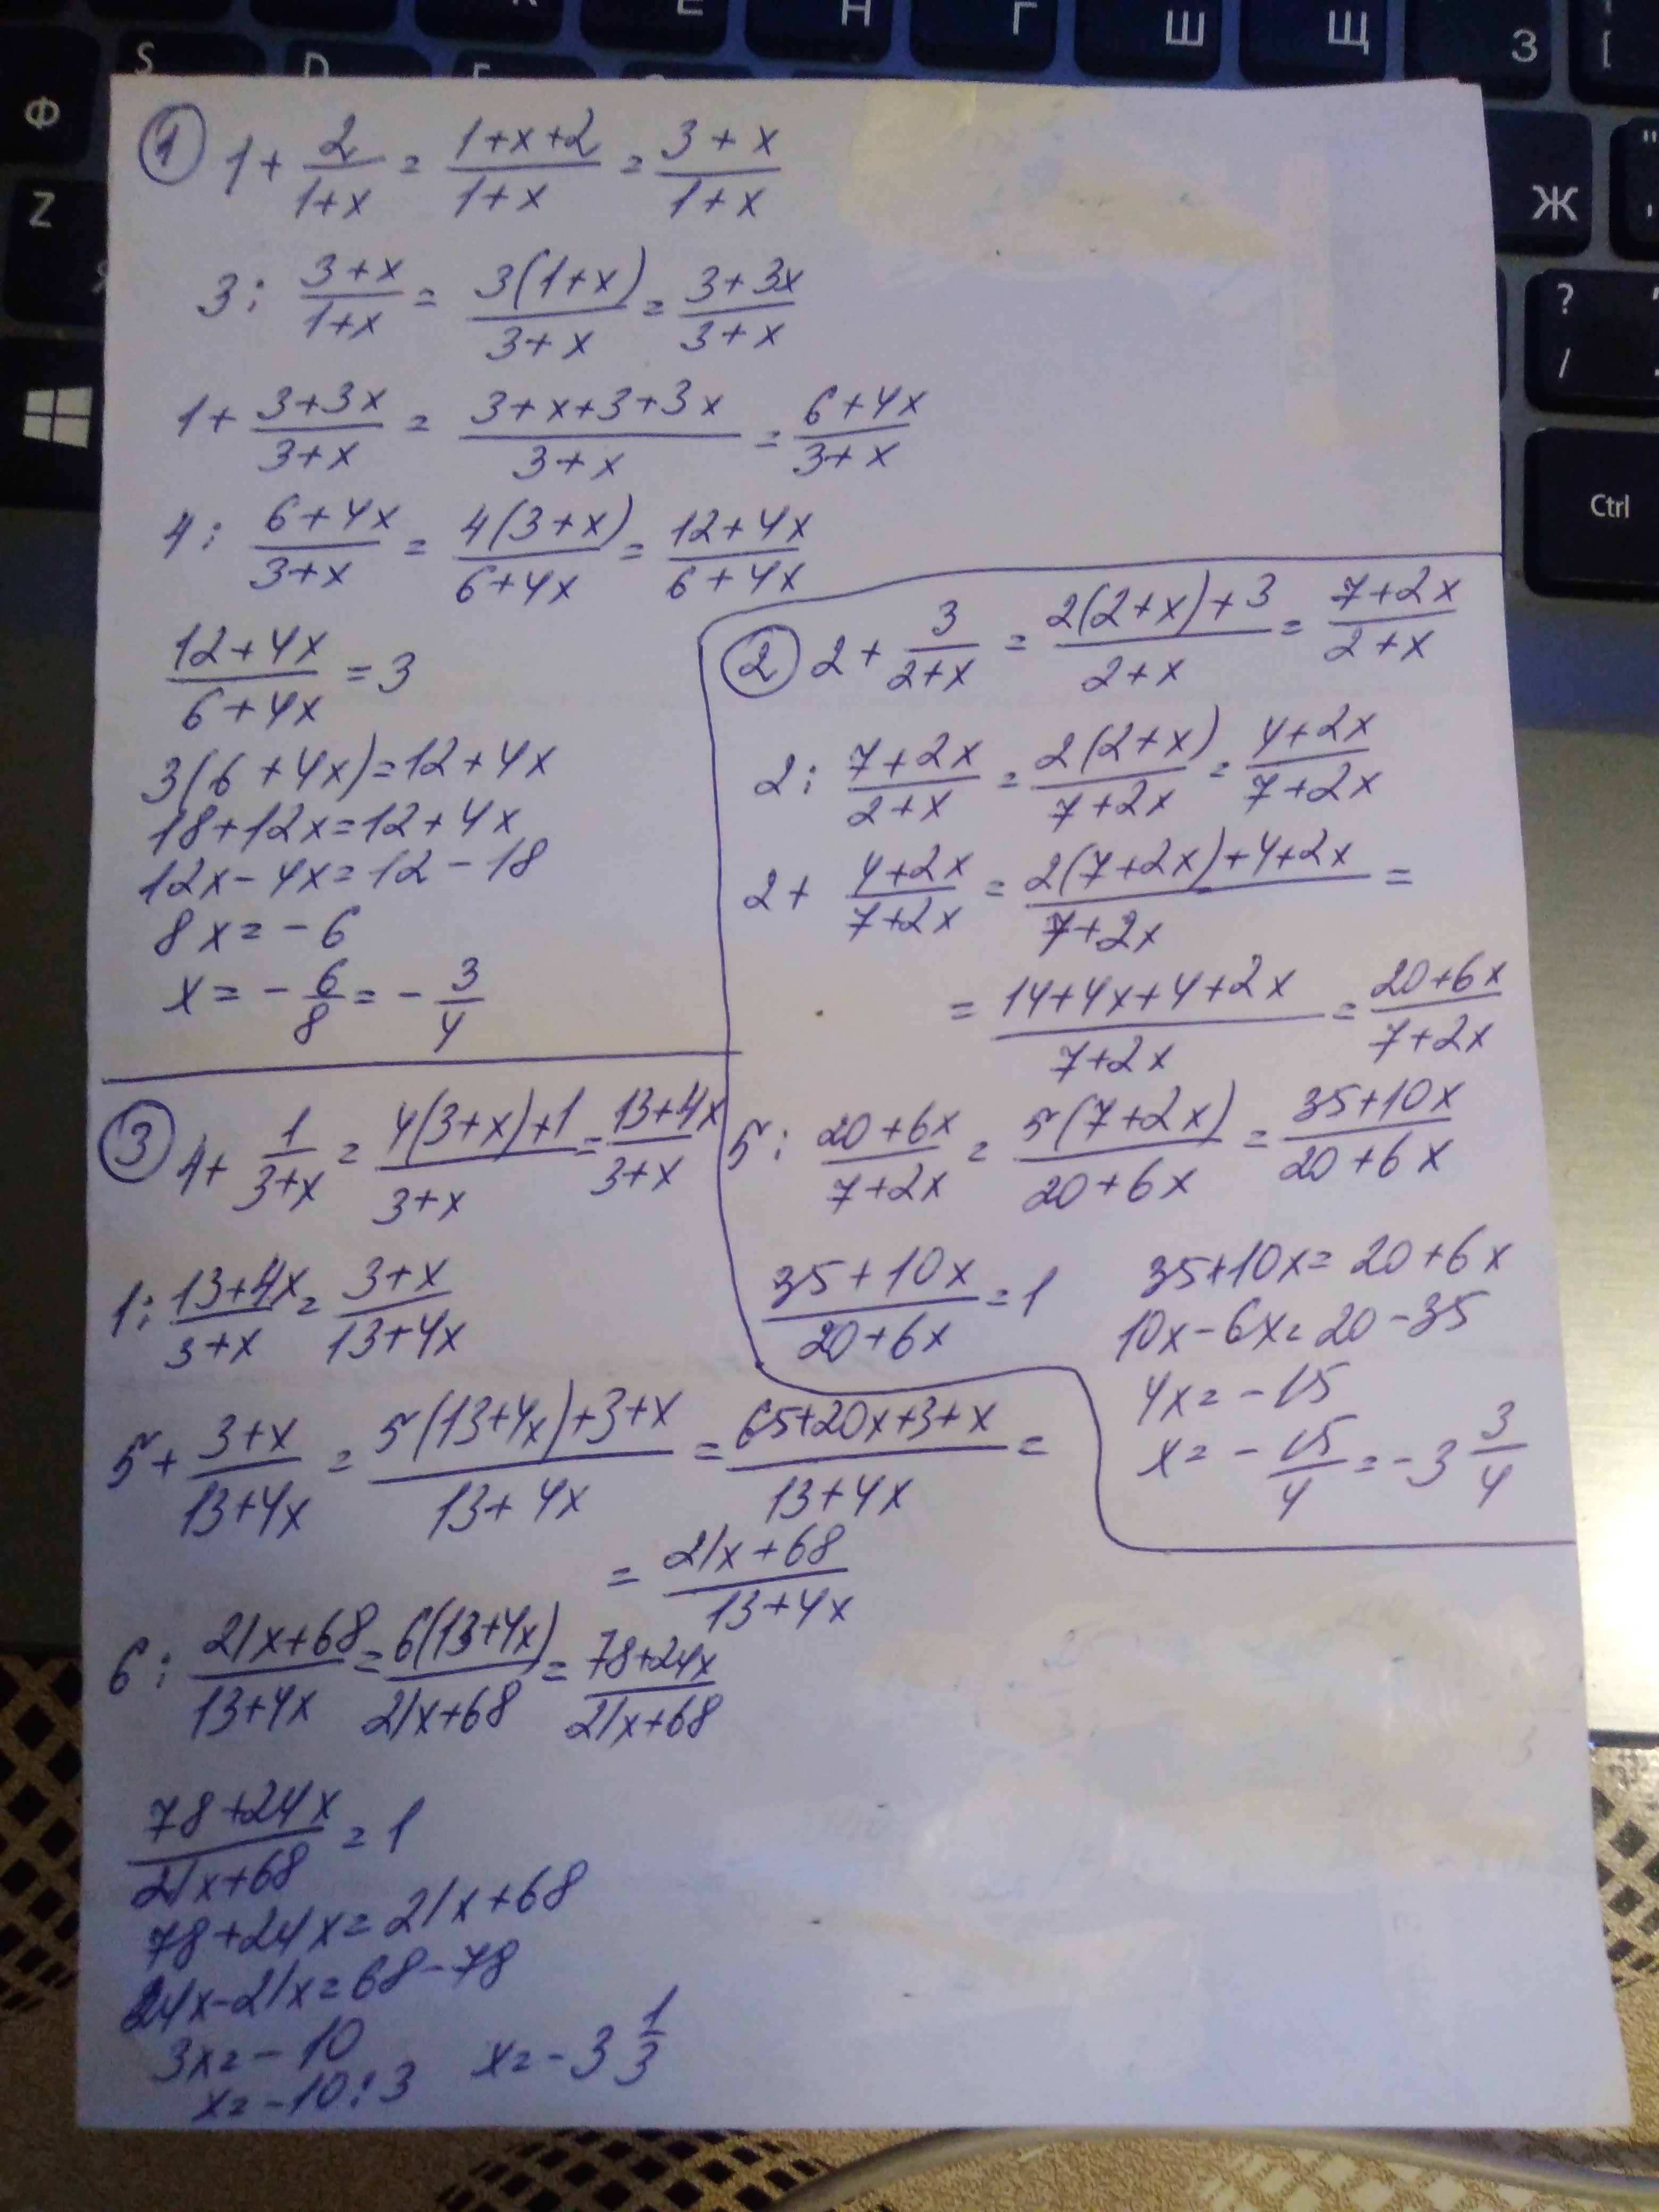 К Е Н Г Ш Щ З [
S D F
Ф
Z
Ж "
? /
Ctrl
① 1 + 2/(1+x) = (1+x+2)/(1+x) = (3+x)/(1+x)
3 : (3+x)/(1+x) = 3(1+x)/(3+x) = (3+3x)/(3+x)
1 + (3+3x)/(3+x) = (3+x+3+3x)/(3+x) = (6+4x)/(3+x)
4 : (6+4x)/(3+x) = 4(3+x)/(6+4x) = (12+4x)/(6+4x)
(12+4x)/(6+4x) = 3
3(6+4x)=12+4x
18+12x=12+4x
12x-4x=12-18
8x=-6
x = -6/8 = -3/4
② 2 + 3/(2+x) = (2(2+x)+3)/(2+x) = (7+2x)/(2+x)
2 : (7+2x)/(2+x) = 2(2+x)/(7+2x) = (4+2x)/(7+2x)
2 + (4+2x)/(7+2x) = (2(7+2x)+4+2x)/(7+2x) =
= (14+4x+4+2x)/(7+2x) = (20+6x)/(7+2x)
5 : (20+6x)/(7+2x) = 5(7+2x)/(20+6x) = (35+10x)/(20+6x)
(35+10x)/(20+6x) = 1
35+10x=20+6x
10x-6x=20-35
4x=-15
x = -15/4 = -3 3/4
③ 4 + 1/(3+x) = (4(3+x)+1)/(3+x) = (13+4x)/(3+x)
1 : (13+4x)/(3+x) = (3+x)/(13+4x)
5 + (3+x)/(13+4x) = (5(13+4x)+3+x)/(13+4x) = (65+20x+3+x)/(13+4x) =
= (21x+68)/(13+4x)
6 : (21x+68)/(13+4x) = 6(13+4x)/(21x+68) = (78+24x)/(21x+68)
(78+24x)/(21x+68) = 1
78+24x=21x+68
24x-21x=68-78
3x=-10
x=-10:3 x=-3 1/3